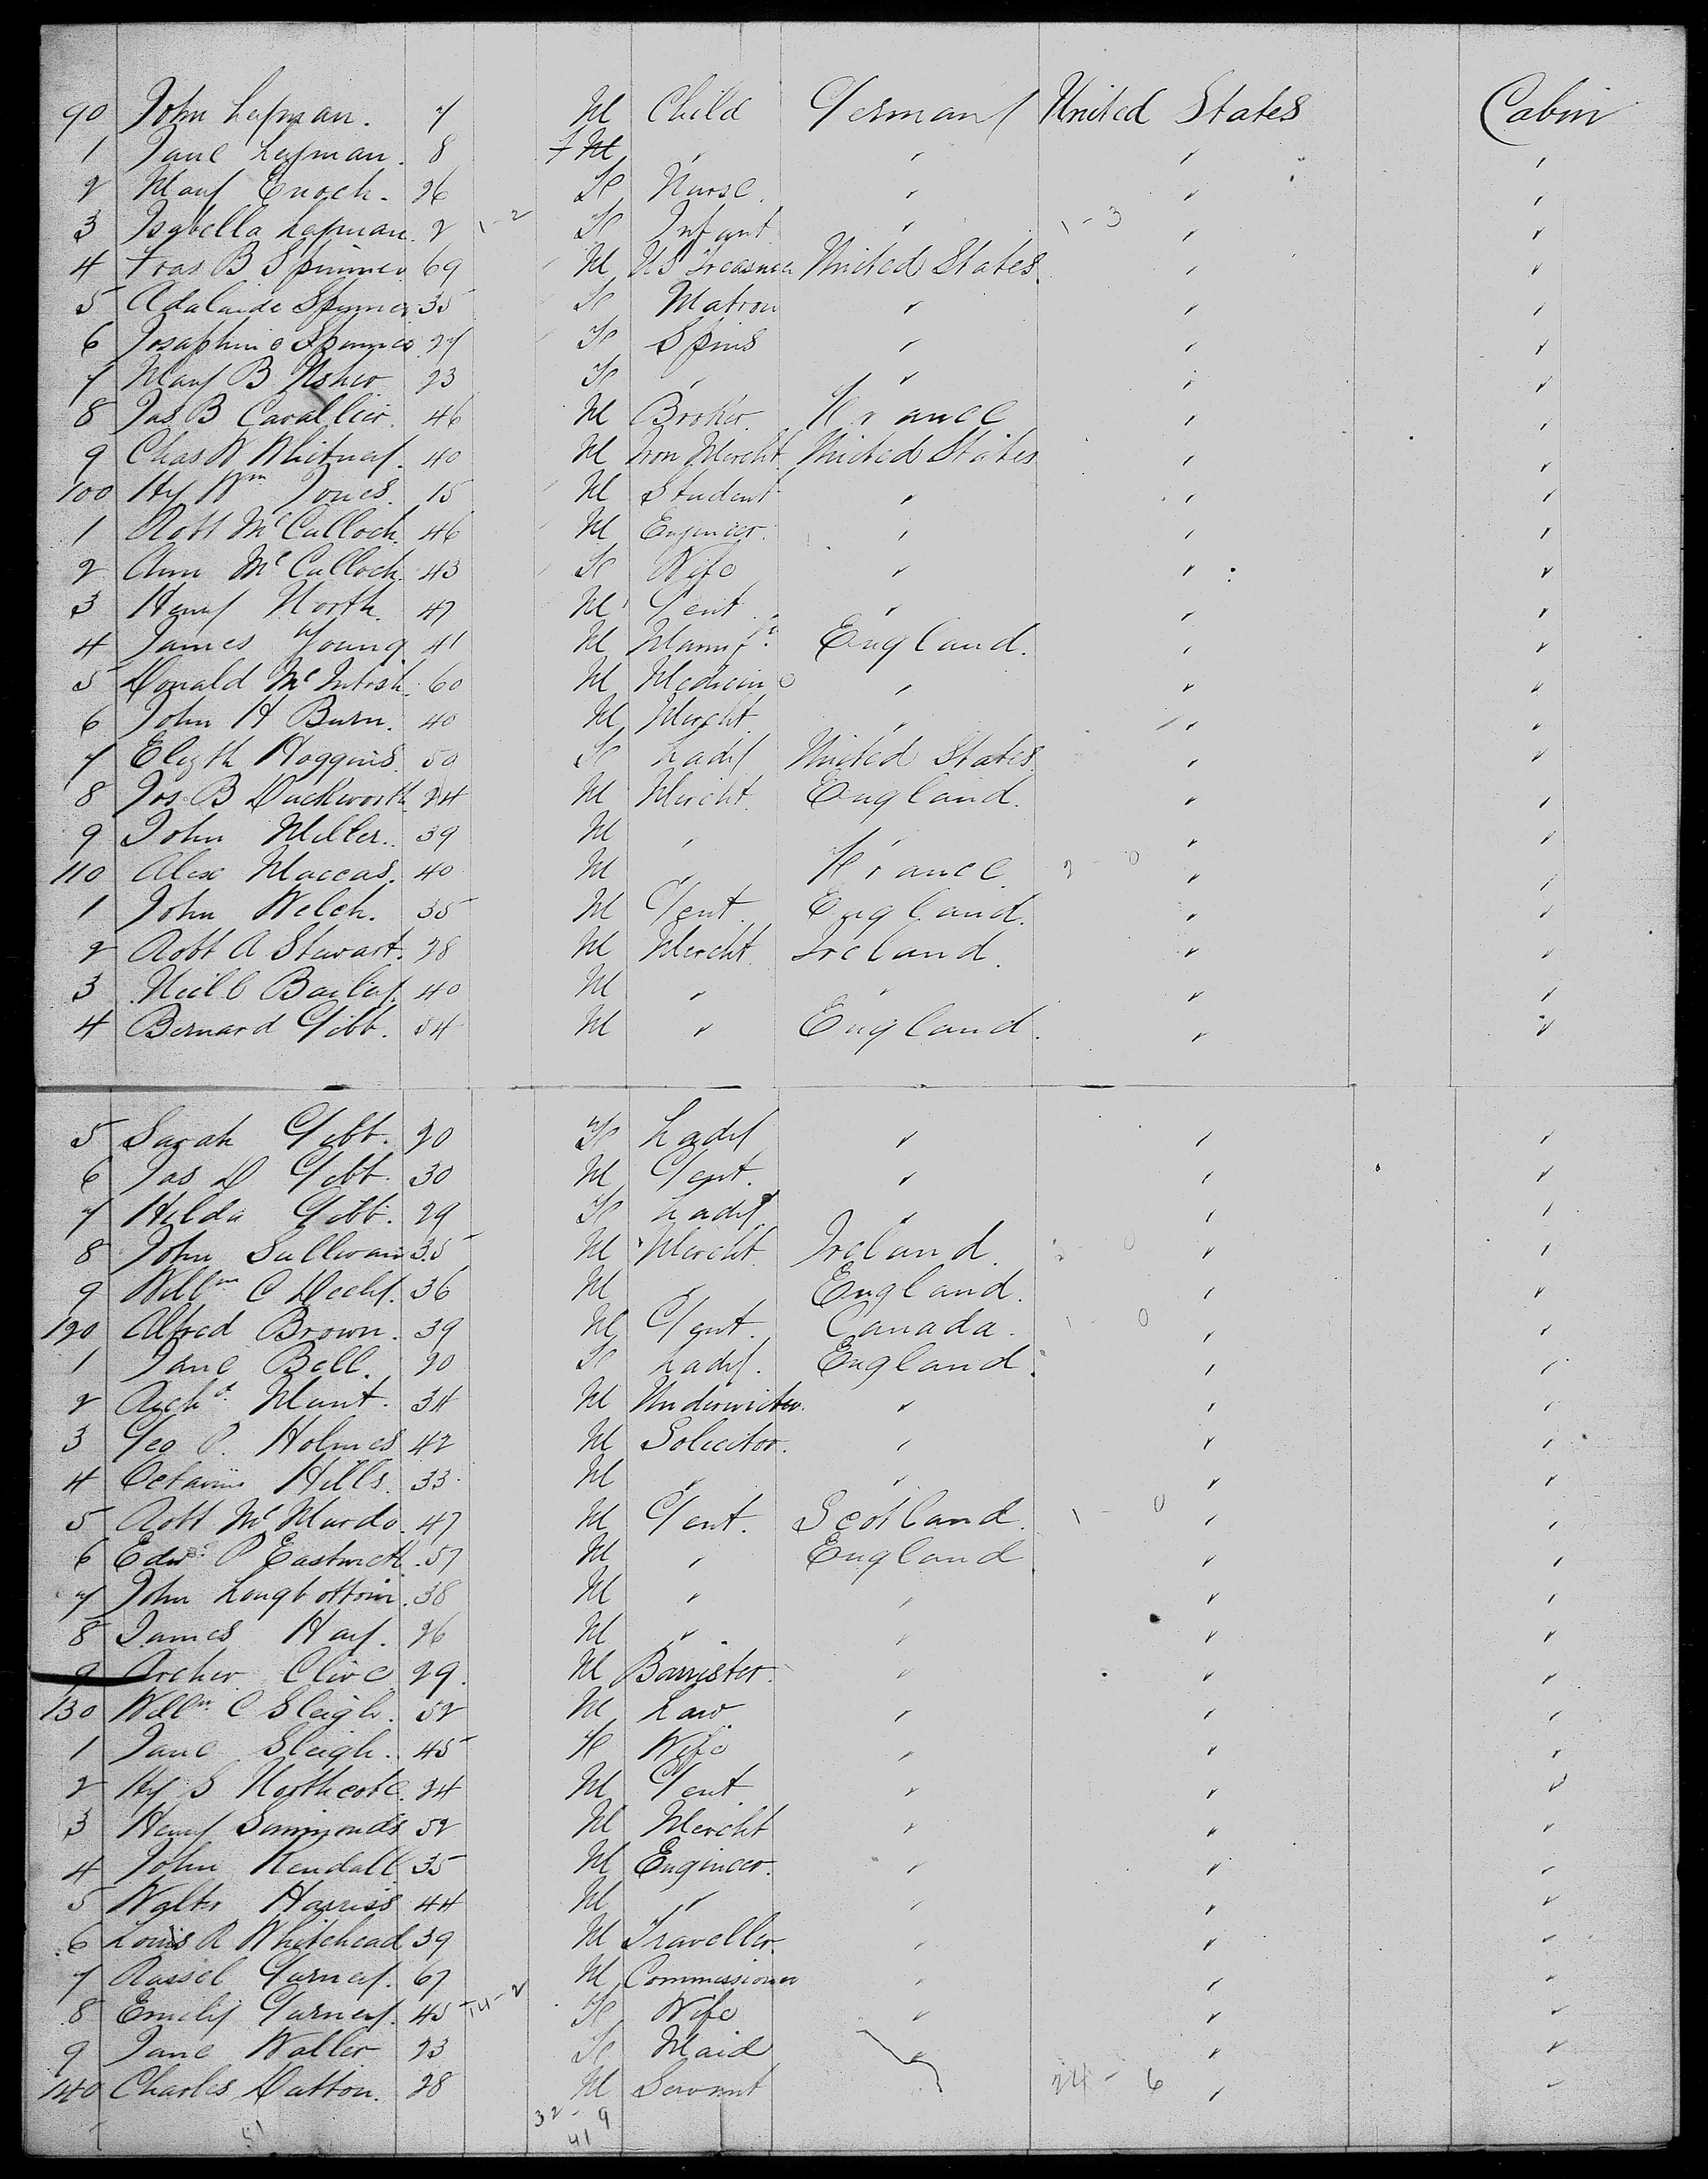 90 John Layman. 7 M Child Germany United States Cabin
1 Jane Layman. 8 F M " " " "
2 Mary Enoch. 26 F Nurse. " " "
3 Isabella Layman. 2 1-2 F Infant " 1-3 " "
4 Fras B Spinner 69 M US Treasurer United States " "
5 Adalaide Spinner 35 F Matron " " "
6 Josaphine Spinner 27 F Spins " " "
7 Mary B Usher 23 F " " " "
8 Jas B Cavallier. 46 M Broker. France " "
9 Chas W Whitney. 40 M Iron Mercht. United States " "
100 Hy Wm Jones. 15 M Student " " "
1 Robt McCulloch. 46 M Engineer. " " "
2 Ann McCulloch. 43 F Wife " " "
3 Henry North. 47 M Gent " " "
4 James Young 41 M Manufr. England. " "
5 Donald McIntosh. 60 M Medicine " " "
6 John H Burn. 40 M Mercht. " " "
7 Elizth Hoggins. 50 F Lady United States " "
8 Jos. B Duckworth 24 M Mercht. England. " "
9 John Miller. 39 M " " " "
110 Alex Maccas. 40 M " France. 2-0 " "
1 John Welch. 35 M Gent. England. " "
2 Robt A Stewart. 28 M Mercht. Ireland. " "
3 Neill Bailey. 40 M " " " "
4 Bernard Gibb. 54 M " England. " "
5 Sarah Gibb. 20 F Lady " " "
6 Jas D Gibb. 30 M Gent. " " "
7 Hilda Gibb. 29 F Lady. " " "
8 John Sullivan 35 M Mercht. Ireland. 0 " "
9 Willm C Dechy. 36 M " England. " "
120 Alfred Brown. 39 M Gent. Canada. 1-0 " "
1 Jane Bell. 20 F Lady. England. " "
2 Archd. Mant. 34 M Underwriter. " " "
3 Geo P. Holmes 42 M Solicitor. " " "
4 Octavius Hills. 33. M " " " "
5 Robt McMurdo. 47 M Gent. Scotland. 1-0 " "
6 Edwd. P Eastwick. 57 M " England " "
7 John Longbottom. 38 M " " " "
8 James Hay. 26 M " " " "
9 Archer Clive 29. M Barrister. " " "
130 Willm C Sleigh. 52 M Law " " "
1 Jane Sleigh. 45 F Wife " " "
2 Hy S Northcote. 24 M Gent " " "
3 Henry Simmonds 52 M Mercht " " "
4 John Kendall. 35 M Engineer. " " "
5 Walter Harriss 44 M " " " "
6 Louis R Whitehead 39 M Traveller. " " "
7 Russel Gurney. 67 M Commissioner " " "
8 Emily Gurney. 45 14-2 F Wife " " "
9 Jane Waller 23 F Maid " " "
140 Charles Dutton. 28 M Servant 24-6 " "
32-9
51 41